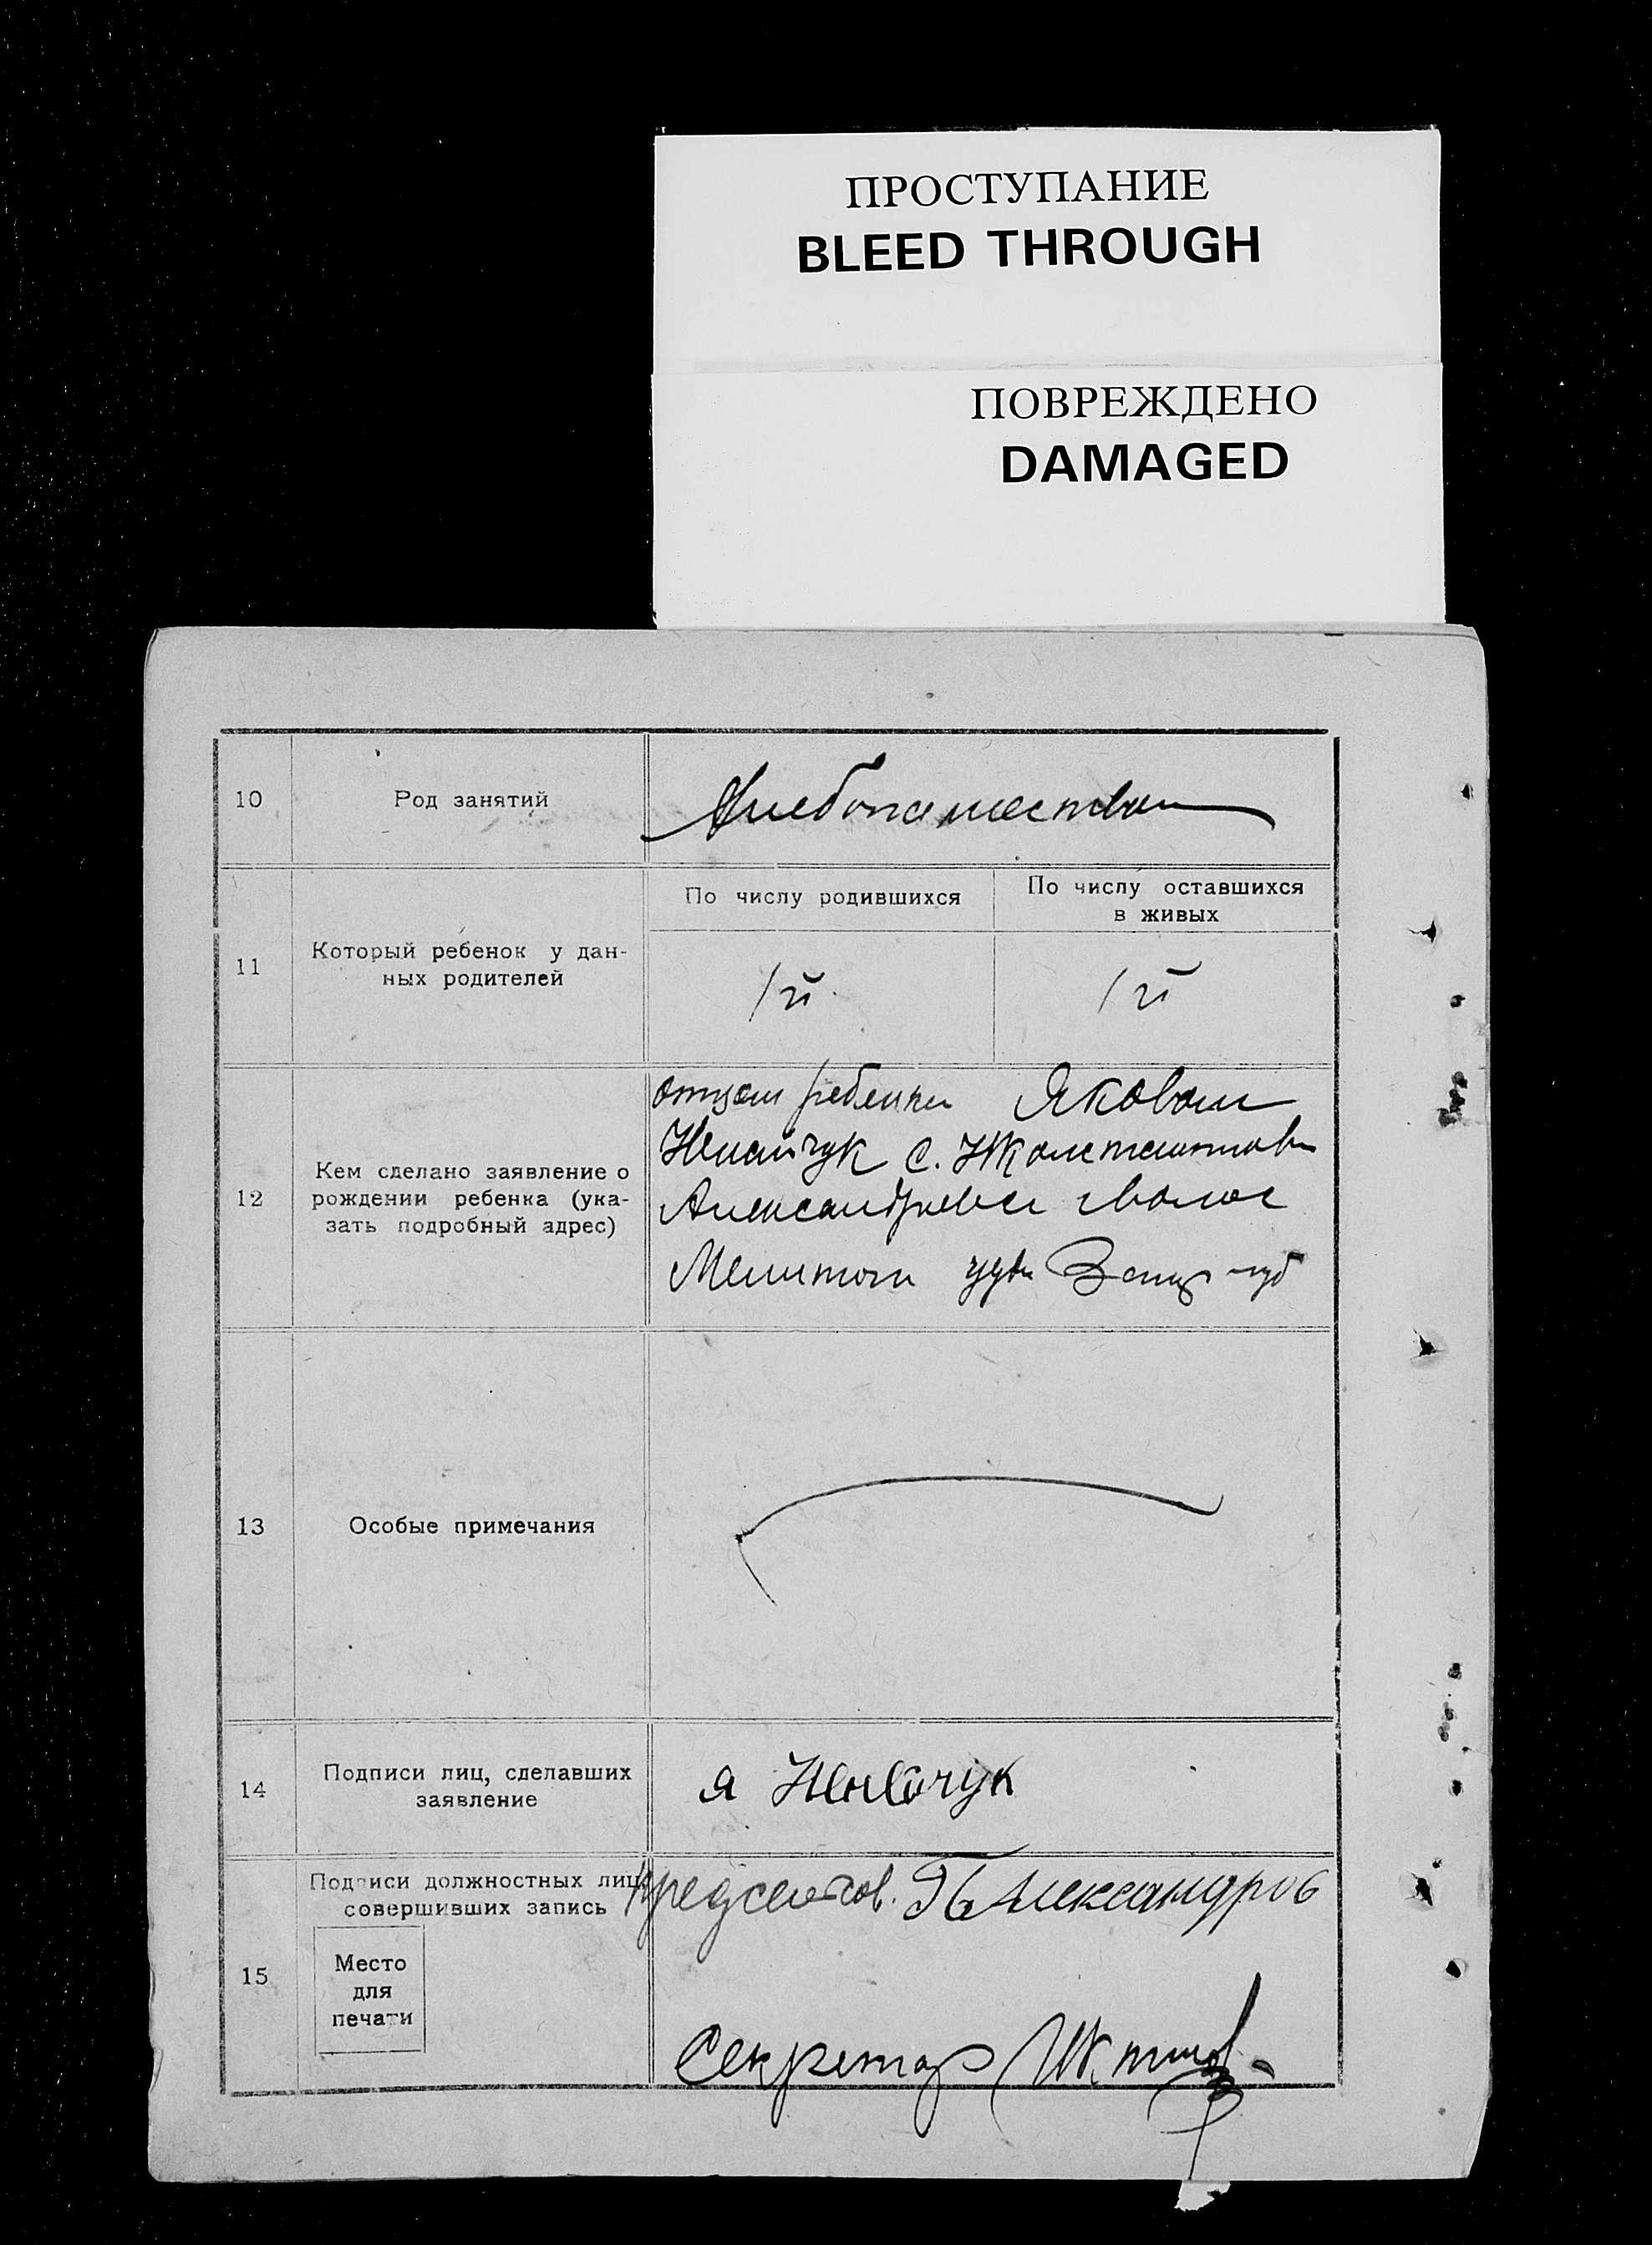 ПРОСТУПАНИЕ
BLEED THROUGH
ПОВРЕЖДЕНО
DAMAGED
10
Род занятий
Хлебопашество
11
Который ребенок у дан-
ных родителей
По числу родившихся
По числу оставшихся
в живых
1й
1й
12
Кем сделано заявление о
рождении ребенка (ука-
зать подробный адрес)
отцом ребенка Яковом
с. Константиновки
Александровск волос
Мелитоп Запор губ
13
Особые примечания
14
Подписи лиц, сделавших
заявление
Я
15
Подписи должностных лиц,
совершивших запись
Место
для
печати
Предсельсов. Александров
Секретар